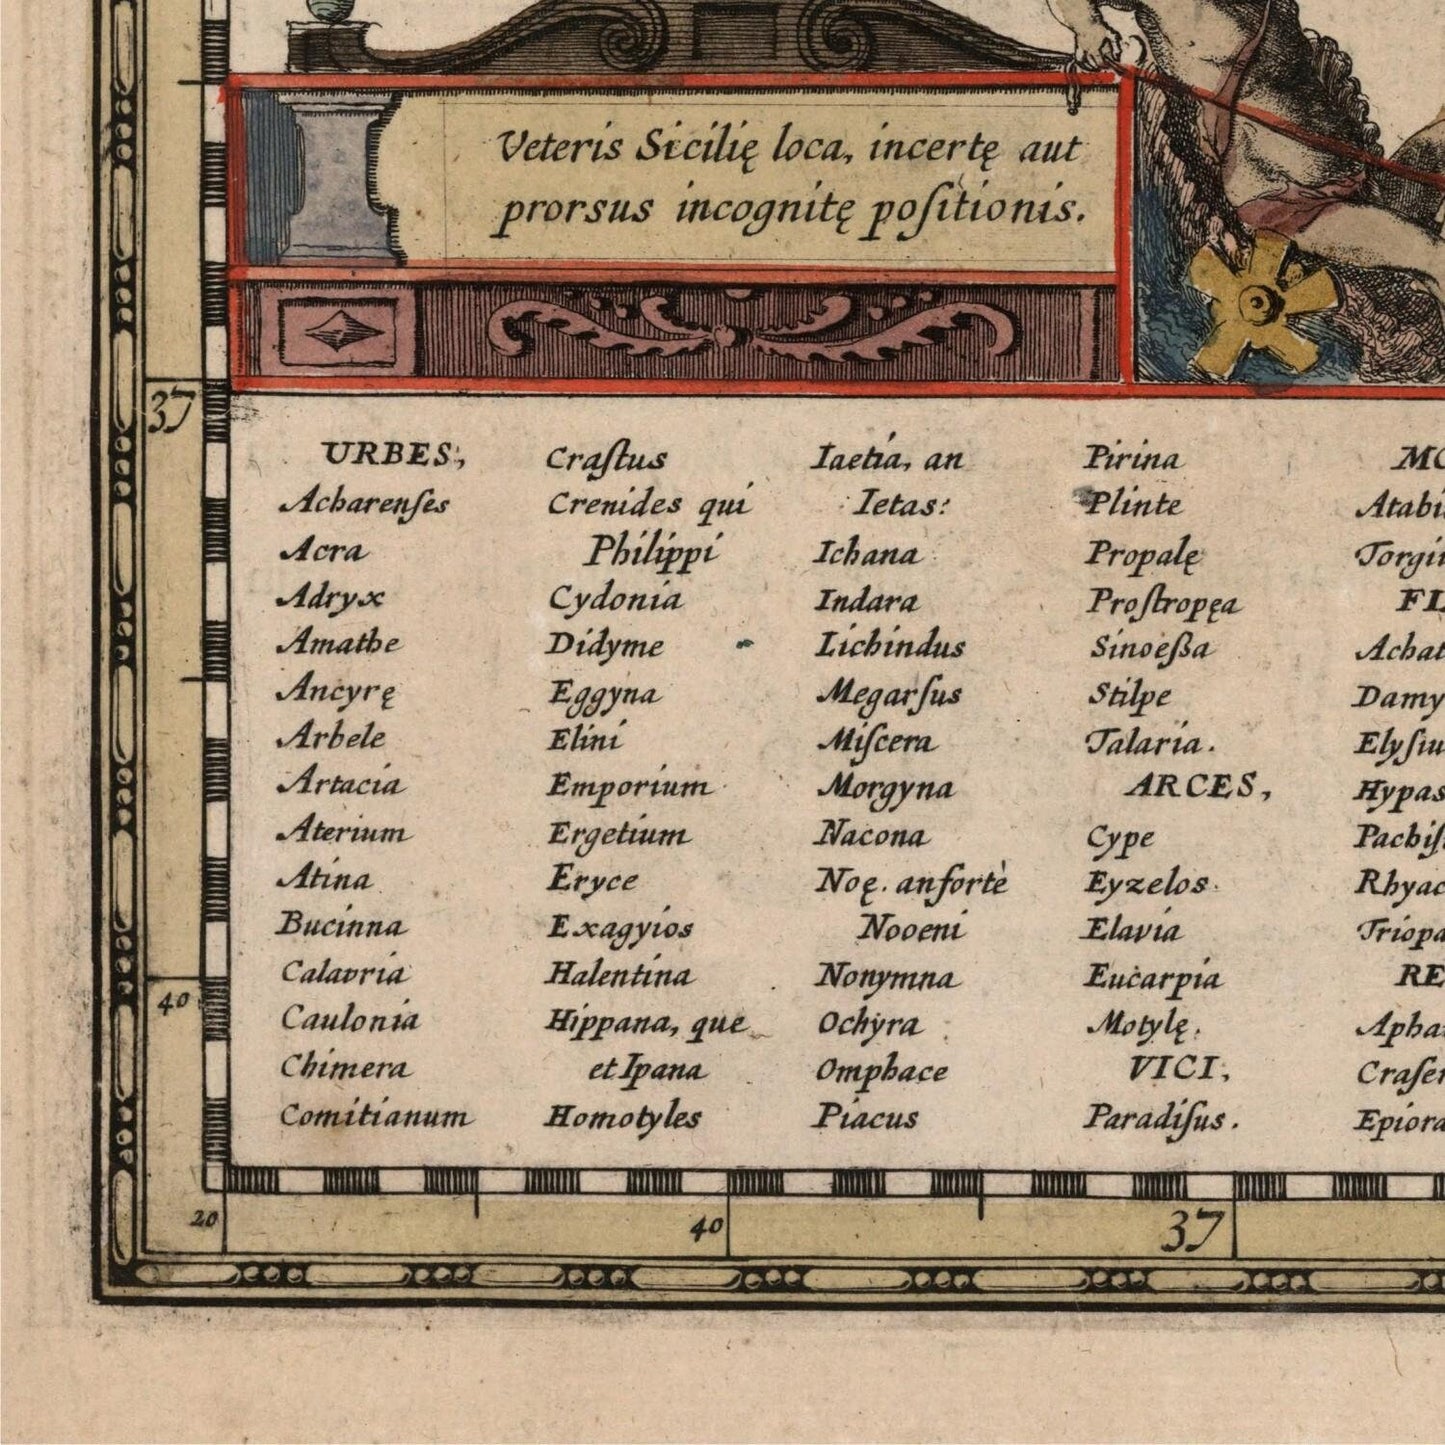 Veteris Sicilię loca, incertę aut
prorsus incognitę poſitionis.
37
40
URBES,
Acharenſes
Acra
Adryx
Amathe
Ancyrę
Arbele
Artacia
Aterium
Atina
Bucinna
Calavria
Caulonia
Chimera
Comitianum
Craſtus
Crenides qui
Philippi
Cydonia
Didyme
Eggyna
Elini
Emporium
Ergetium
Eryce
Exagyios
Halentina
Hippana, que
et Ipana
Homotyles
Iaetia, an
Ietas:
Ichana
Indara
Lichindus
Megarſus
Miſcera
Morgyna
Nacona
Noę. an fortè
Nooeni
Nonymna
Ochyra
Omphace
Piacus
Pirina
Plinte
Propalę
Proſtropęa
Sinoeſſa
Stilpe
Talaria.
ARCES,
Cype
Eyzelos
Elavia
Eucarpia
Motylę.
VICI,
Paradiſus.
Damy
Hypas
20
40
37